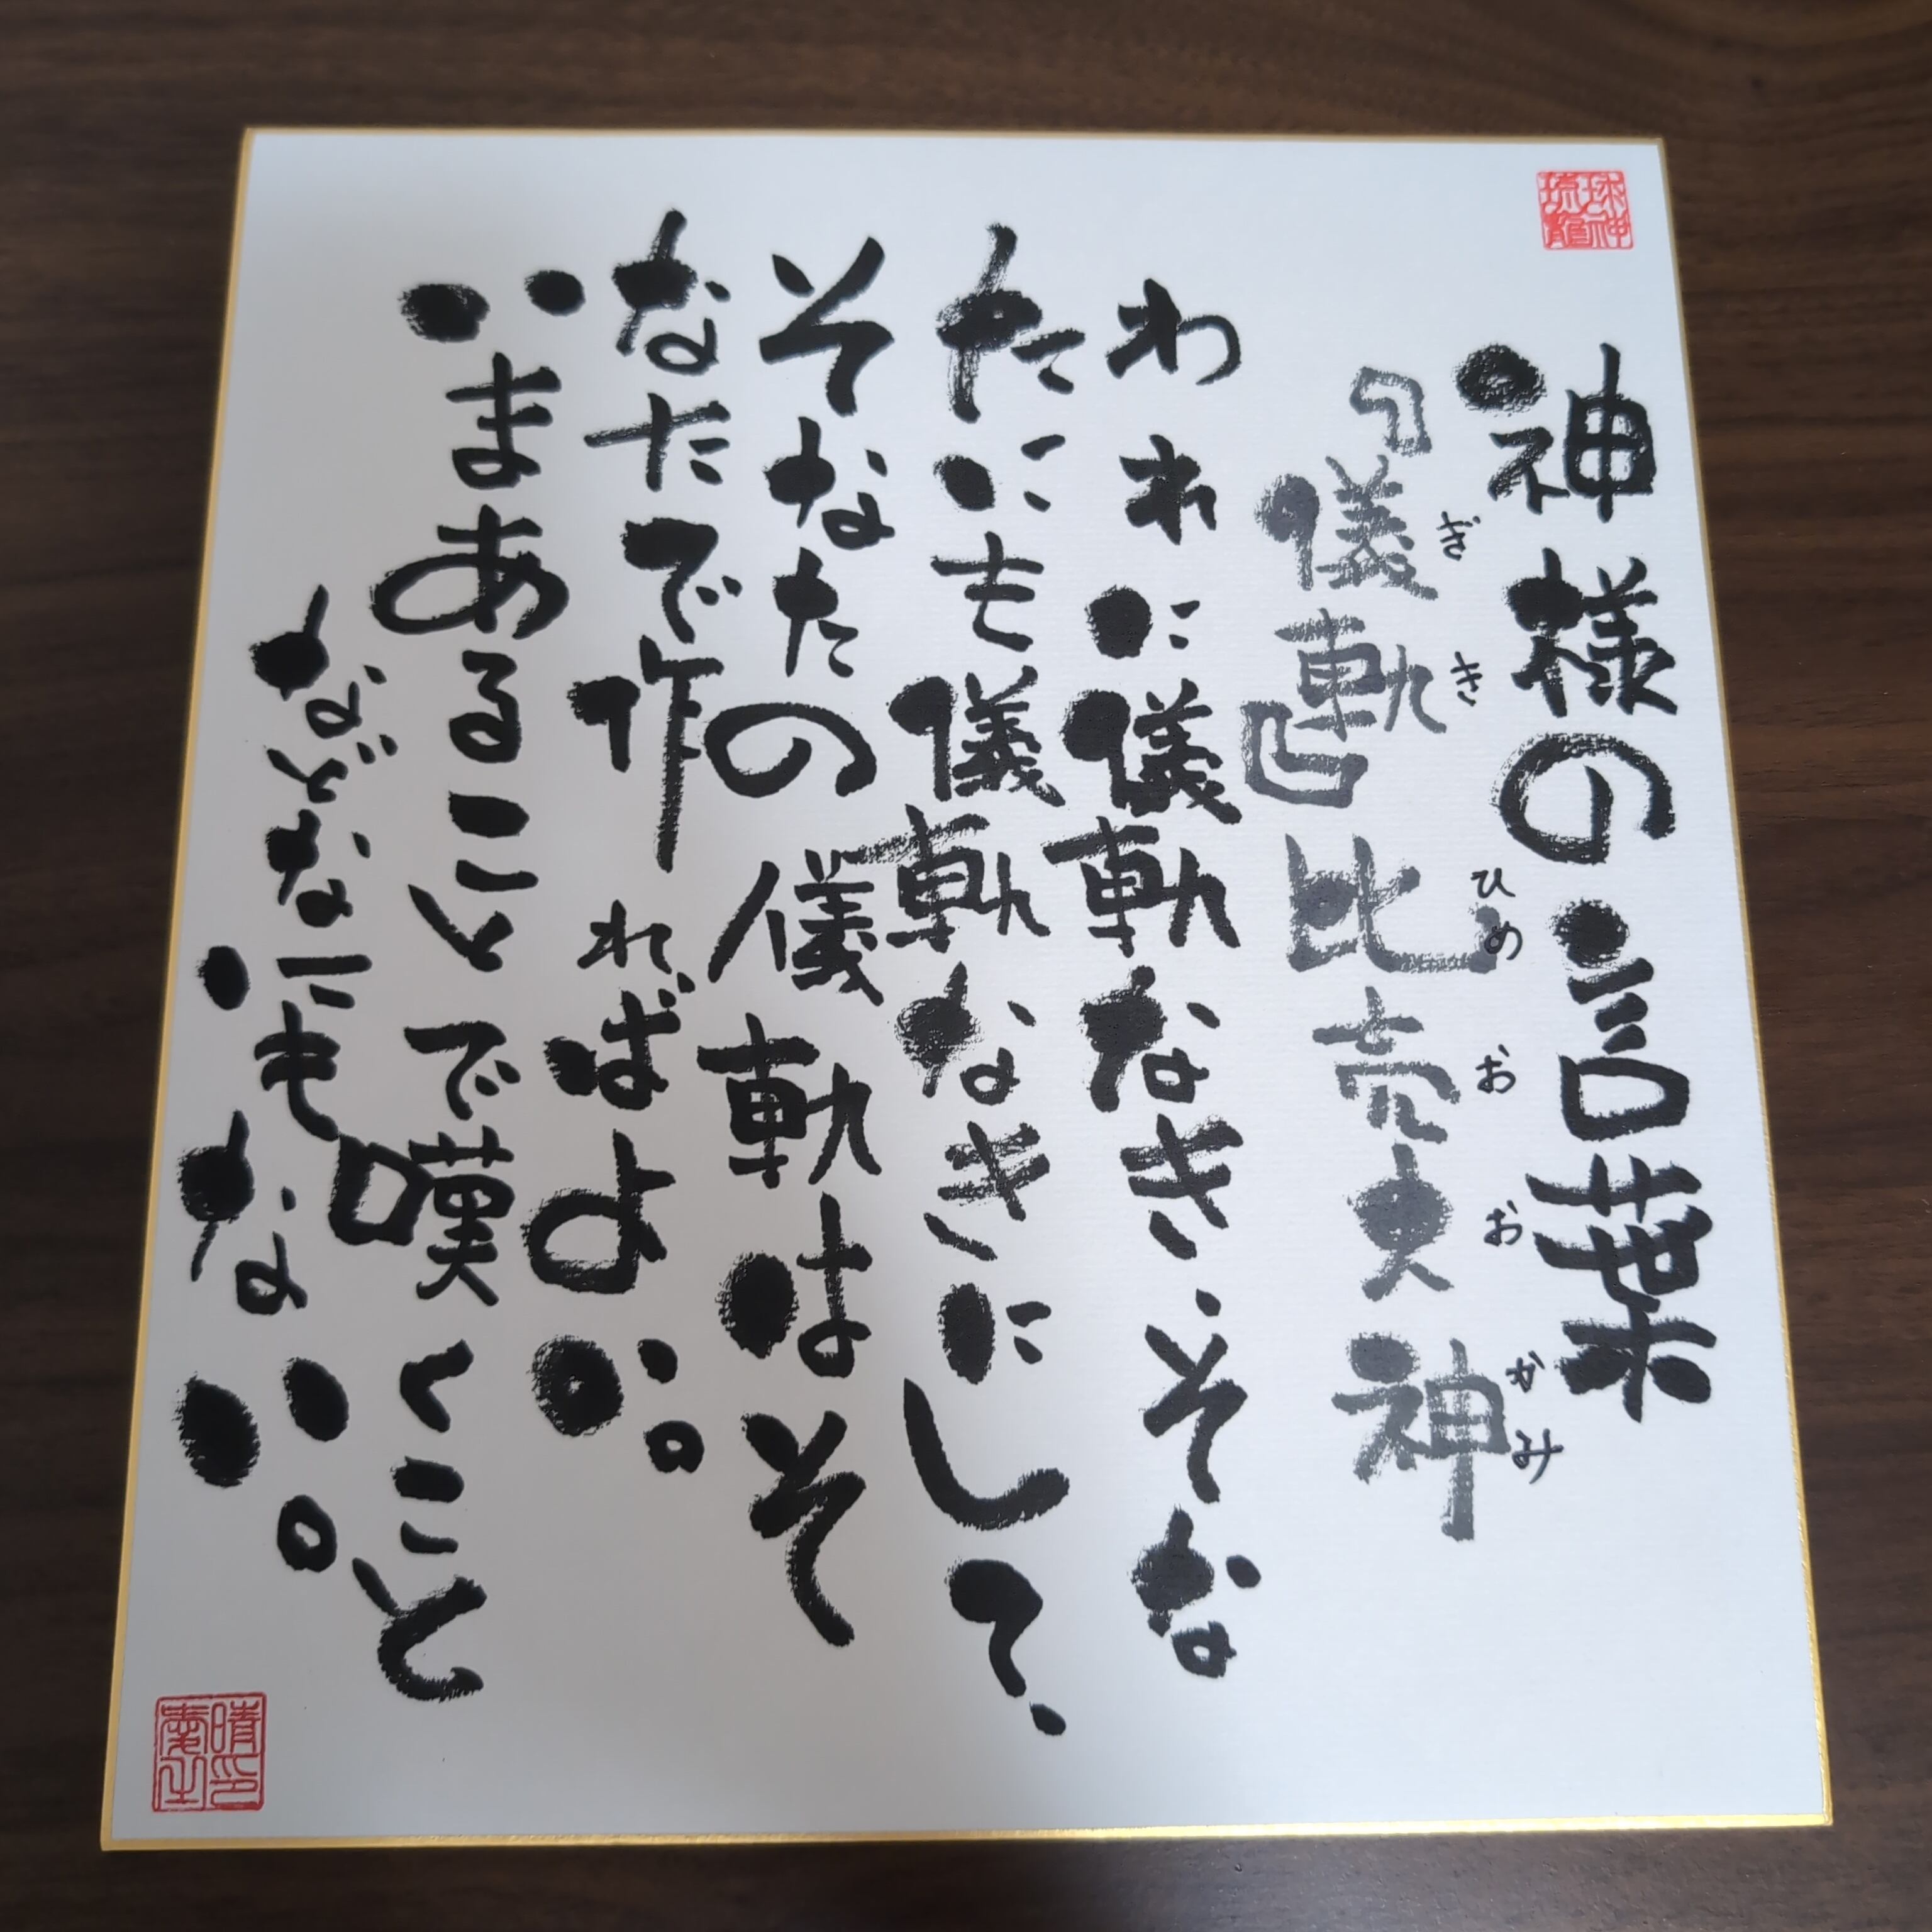 琉球
龍神
神様の言葉
『儀軌』比売大神
ぎき ひめ おお かみ
われに儀軌なき、そな
たにも儀軌なきにして、
そなたの儀軌はそ
なたで作ればよい。
いまあることで嘆くこと
などなにもない。